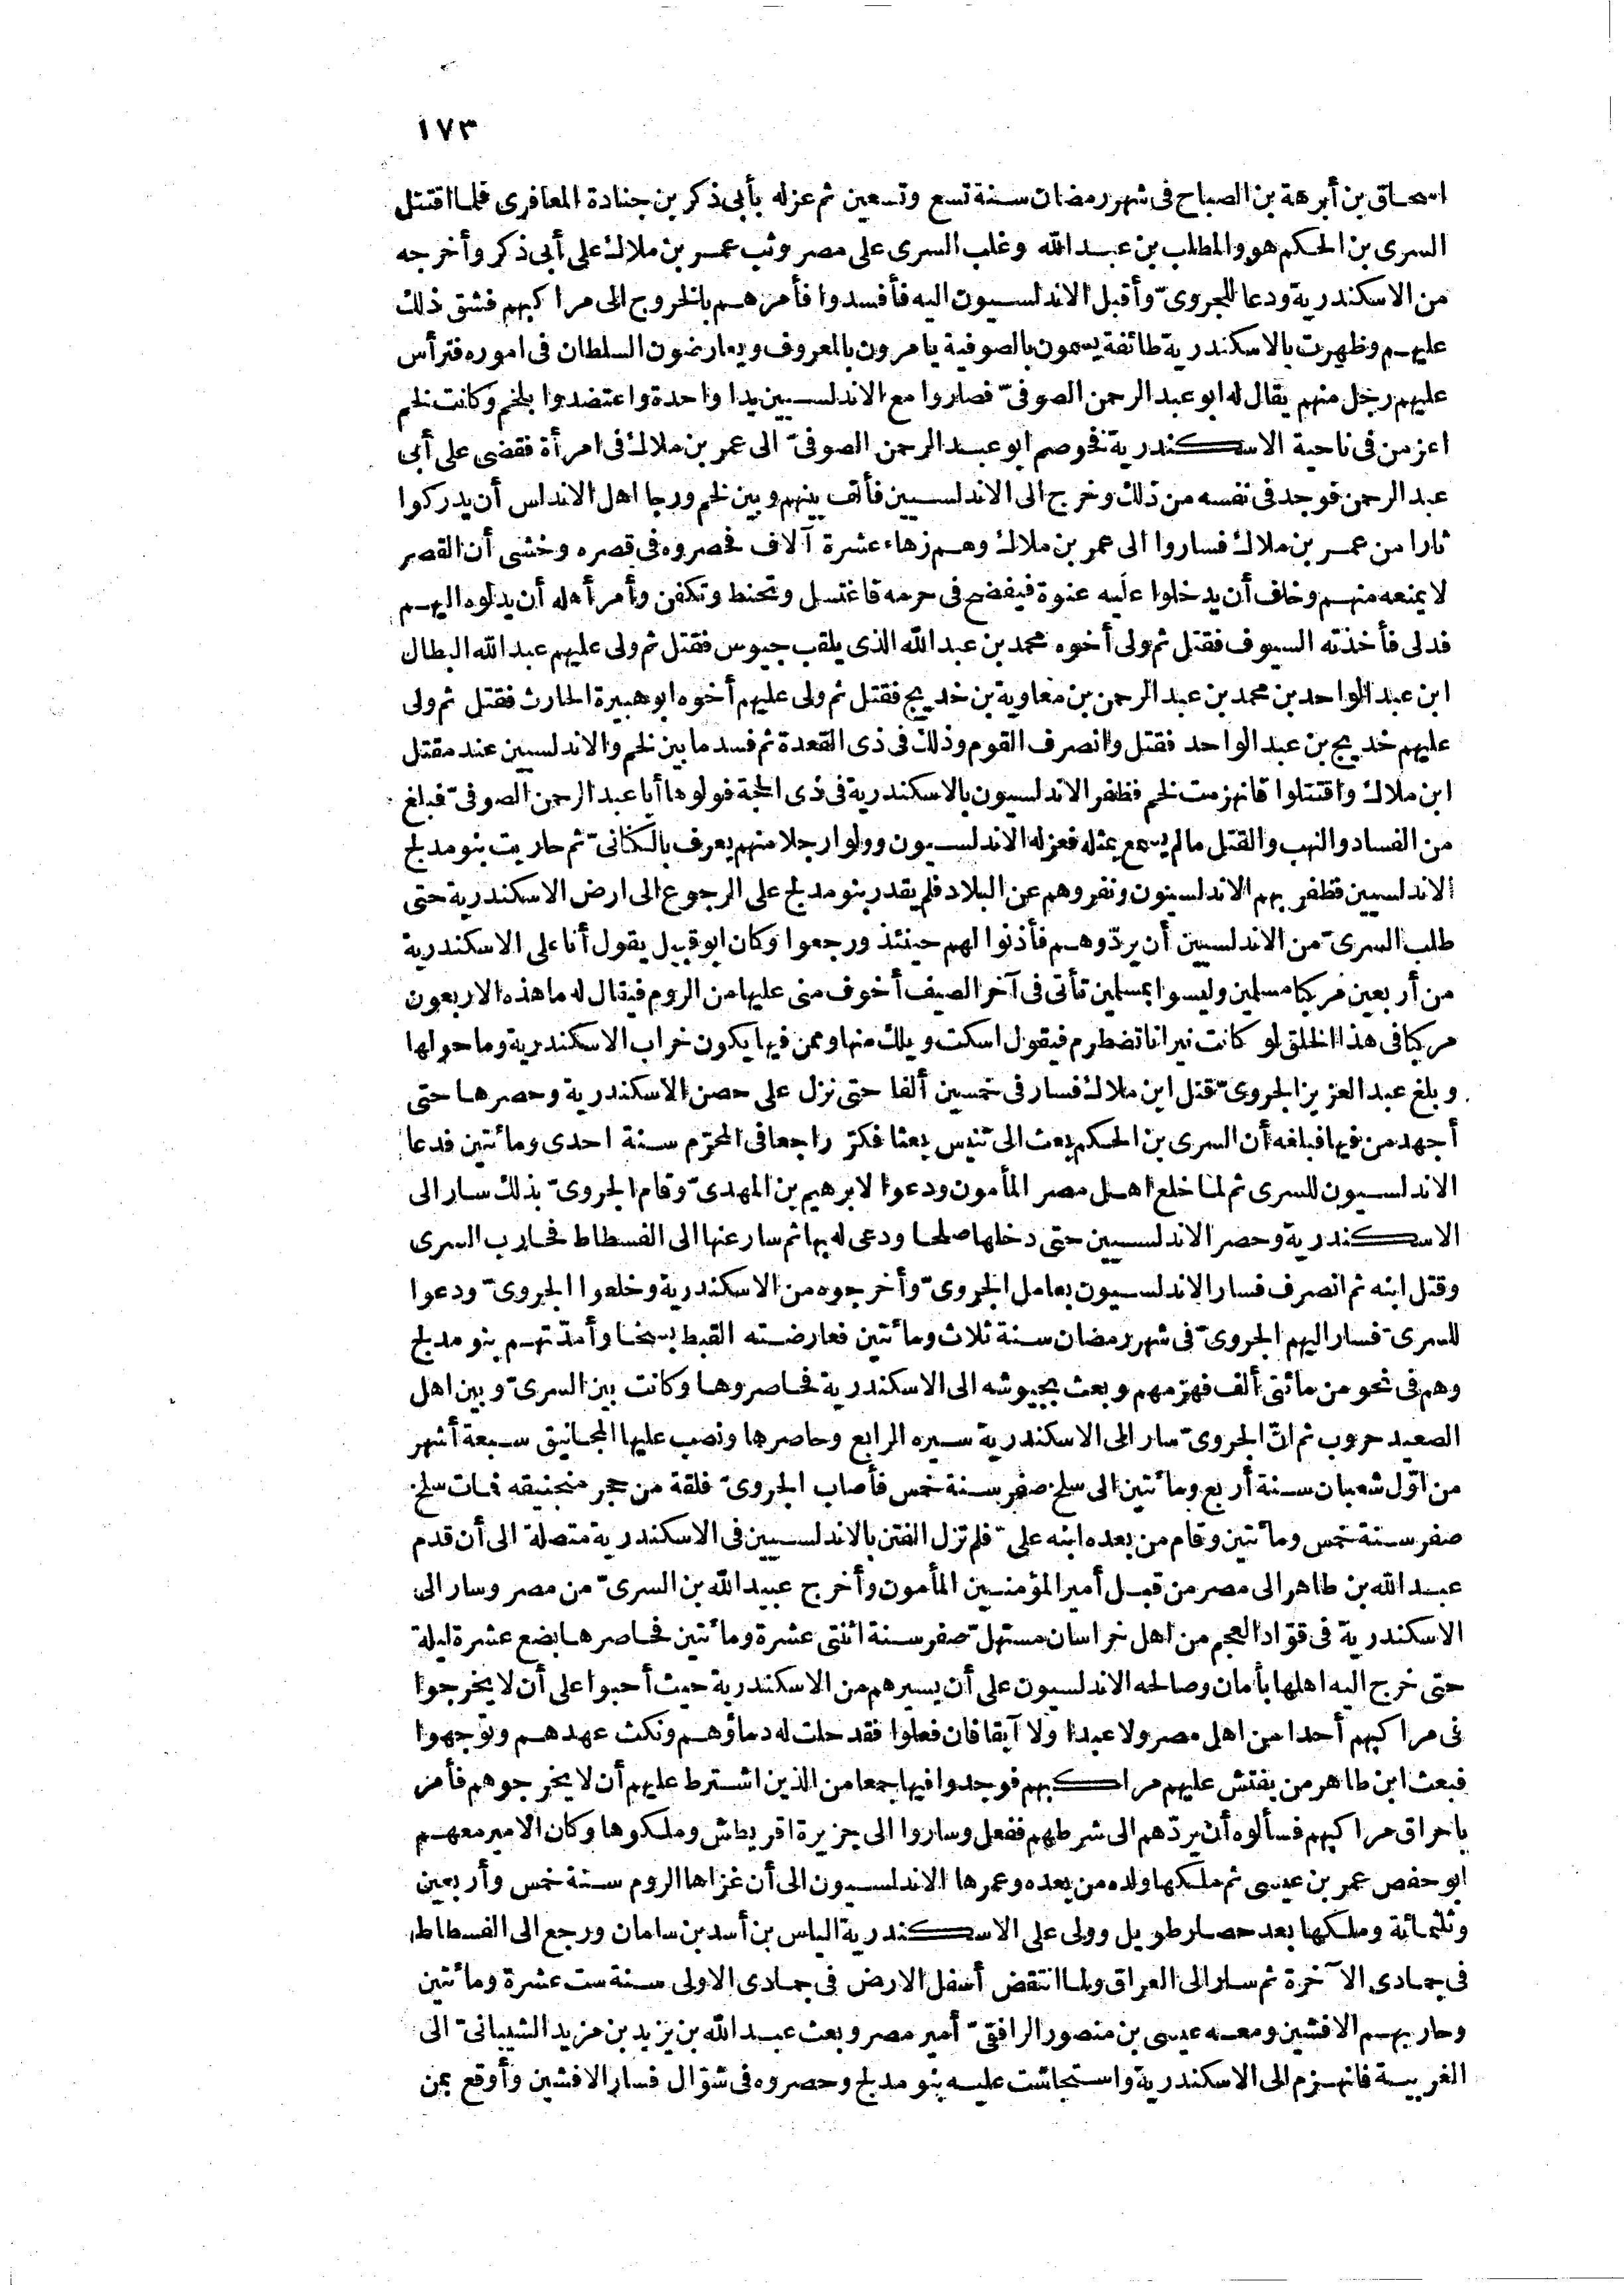 ١٧٣
اسحاق بن أبرهة بن الصباح فى شهر رمضان سنة تسع وتسعين ثم عزله بأبى ذكر بن جنادة المعافرى فلما اقتتل
السرى بن الحكم هو والمطلب بن عبد الله وغلب السرى على مصر وثب عمر بن ملاك على أبى ذكر وأخرجه
من الاسكندرية ودعا للجروىّ وأقبل الاندلسيون اليه فأفسدوا فأمرهم بالخروج الى مراكبهم فشق ذلك
عليهم وظهرت بالاسكندرية طائفة يسمون بالصوفية يامرون بالمعروف ويعارضون السلطان فى اموره فترأس
عليهم رجل منهم يقال له ابو عبد الرحمن الصوفىّ فصاروا مع الاندلسيين يدا واحدة واعتضدوا بلخم وكانت لخم
اعز من فى ناحية الاسكندرية فخوصم ابو عبد الرحمن الصوفىّ الى عمر بن ملاك فى امرأة فقضى على أبى
عبد الرحمن فوجد فى نفسه من ذلك وخرج الى الاندلسيين فألف بينهم وبين لخم ورجا اهل الاندلس أن يدركوا
ثارا من عمر بن ملاك فساروا الى عمر بن ملاك وهم زهاء عشرة آلاف فحصروه فى قصره وخشى أن القصر
لا يمنعه منهم وخاف أن يدخلوا عليه عنوة فيفضح فى حرمه فاغتسل وتحنط وتكفن وأمر أهله أن يدلوه اليهم
فدلى فأخذته السيوف فقتل ثم ولى أخوه محمد بن عبد الله الذى يلقب جيوس فقتل ثم ولى عليهم عبد الله البطال
ابن عبد الواحد بن محمد بن عبد الرحمن بن معاوية بن خديج فقتل ثم ولى عليهم أخوه ابو هبيرة الحارث فقتل ثم ولى
عليهم خديج بن عبد الواحد فقتل وانصرف القوم وذلك فى ذى القعدة ثم فسد ما بين لخم والاندلسيين عند مقتل
ابن ملاك واقتتلوا فانهزمت لخم فظفر الاندلسيون بالاسكندرية فى ذى الحجة فولوها أبا عبد الرحمن الصوفىّ فبلغ
من الفساد والنهب والقتل مالم يسمع بمثله فعزله الاندلسيون وولوا رجلا منهم يعرف بالكنانىّ ثم حاربت بنو مدلج
الاندلسيين فظفر بهم الاندلسيون ونفروهم عن البلاد فلم يقدر بنو مدلج على الرجوع الى ارض الاسكندرية حتى
طلب السرىّ من الاندلسيين أن يردّوهم فأذنوا لهم حينئذ ورجعوا وكان ابو قبيل يقول أنا على الاسكندرية
من أربعين مركبا مسلمين وليسوا بمسلمين تأتى فى آخر الصيف أخوف منى عليها من الروم فيقال له ما هذه الاربعون
مركبا فى هذا الخلق لو كانت نيرانا تضطرم فيقول اسكت ويلك منها وممن فيها يكون خراب الاسكندرية وما حولها
وبلغ عبد العزيز الجروىّ قتل ابن ملاك فسار فى خمسين ألفا حتى نزل على حصن الاسكندرية وحصرها حتى
أجهد من فيها فبلغه أن السرى بن الحكم بعث الى تنيس بعثا فكرّ راجعا فى المحرّم سنة احدى ومائتين فدعا
الاندلسيون للسرى ثم لما خلع اهل مصر المأمون ودعوا لابرهيم بن المهدىّ وقام الجروىّ بذلك سار الى
الاسكندرية وحصر الاندلسيين حتى دخلها صلحا ودعى له بها ثم سار عنها الى الفسطاط فحارب السرى
وقتل ابنه ثم انصرف فسار الاندلسيون بعامل الجروىّ وأخرجوه من الاسكندرية وخلعوا الجروىّ ودعوا
للسرىّ فسار اليهم الجروىّ فى شهر رمضان سنة ثلاث ومائتين فعارضته القبط بسخا وأمدّتهم بنو مدلج
وهم فى نحو من مائتى ألف فهزمهم وبعث بجيوشه الى الاسكندرية فحاصروها وكانت بين السرىّ وبين اهل
الصعيد حروب ثم انّ الجروىّ سار الى الاسكندرية سيره الرابع وحاصرها ونصب عليها المجانيق سبعة أشهر
من اوّل شعبان سنة أربع ومائتين الى سلخ صفر سنة خمس فأصاب الجروىّ فلقة من حجر منجنيقه فمات سلخ
صفر سنة خمس ومائتين وقام من بعده ابنه علىّ فلم تزل الفتن بالاندلسيين فى الاسكندرية متصلة الى أن قدم
عبد الله بن طاهر الى مصر من قبل أمير المؤمنين المأمون وأخرج عبيد الله بن السرىّ من مصر وسار الى
الاسكندرية فى قوّاد العجم من اهل خراسان مستهلّ صفر سنة اثنتى عشرة ومائتين فحاصرها بضع عشرة ليلة
حتى خرج اليه اهلها بأمان وصالحه الاندلسيون على أن يسيرهم من الاسكندرية حيث أحبوا على أن لا يخرجوا
فى مراكبهم أحدا من اهل مصر ولا عبدا ولا آبقا فان فعلوا فقد حلت له دماؤهم ونكث عهدهم وتوجهوا
فبعث ابن طاهر من يفتش عليهم مراكبهم فوجدوا فيها جمعا من الذين اشترط عليهم أن لا يخرجوهم فأمر
باحراق مراكبهم فسألوه أن يردّهم الى شرطهم ففعل وساروا الى جزيرة اقريطش وملكوها وكان الامير معهم
ابو حفص عمر بن عيسى ثم ملكها ولده من بعده وعمرها الاندلسيون الى أن غزاها الروم سنة خمس وأربعين
وثلثمائة وملكها بعد حصار طويل وولى على الاسكندرية الياس بن أسد بن سامان ورجع الى الفسطاط
فى جمادى الآخرة ثم سار الى العراق ولما انتقض أسفل الارض فى جمادى الاولى سنة ست عشرة ومائتين
وحاربهم الافشين ومعه عيسى بن منصور الرافقىّ أمير مصر وبعث عبد الله بن يزيد بن مزيد الشيبانىّ الى
الغربية فانهزم الى الاسكندرية واستجاشت عليه بنو مدلج وحصروه فى شوّال فسار الافشين وأوقع بمن